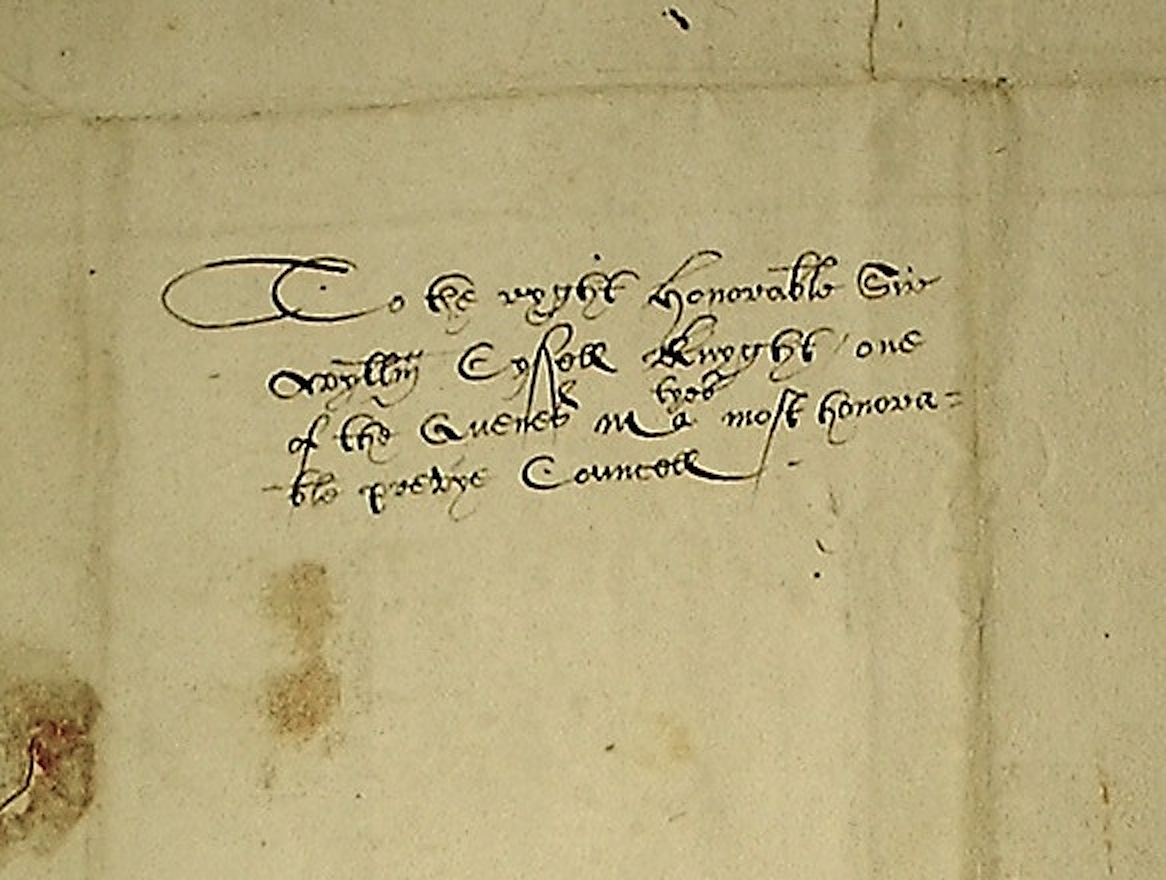 To the ryght honorable Sir
Wyllm Cyssell Knyght one
of the Quenes Ma tyes most honora=
ble prevye Councell